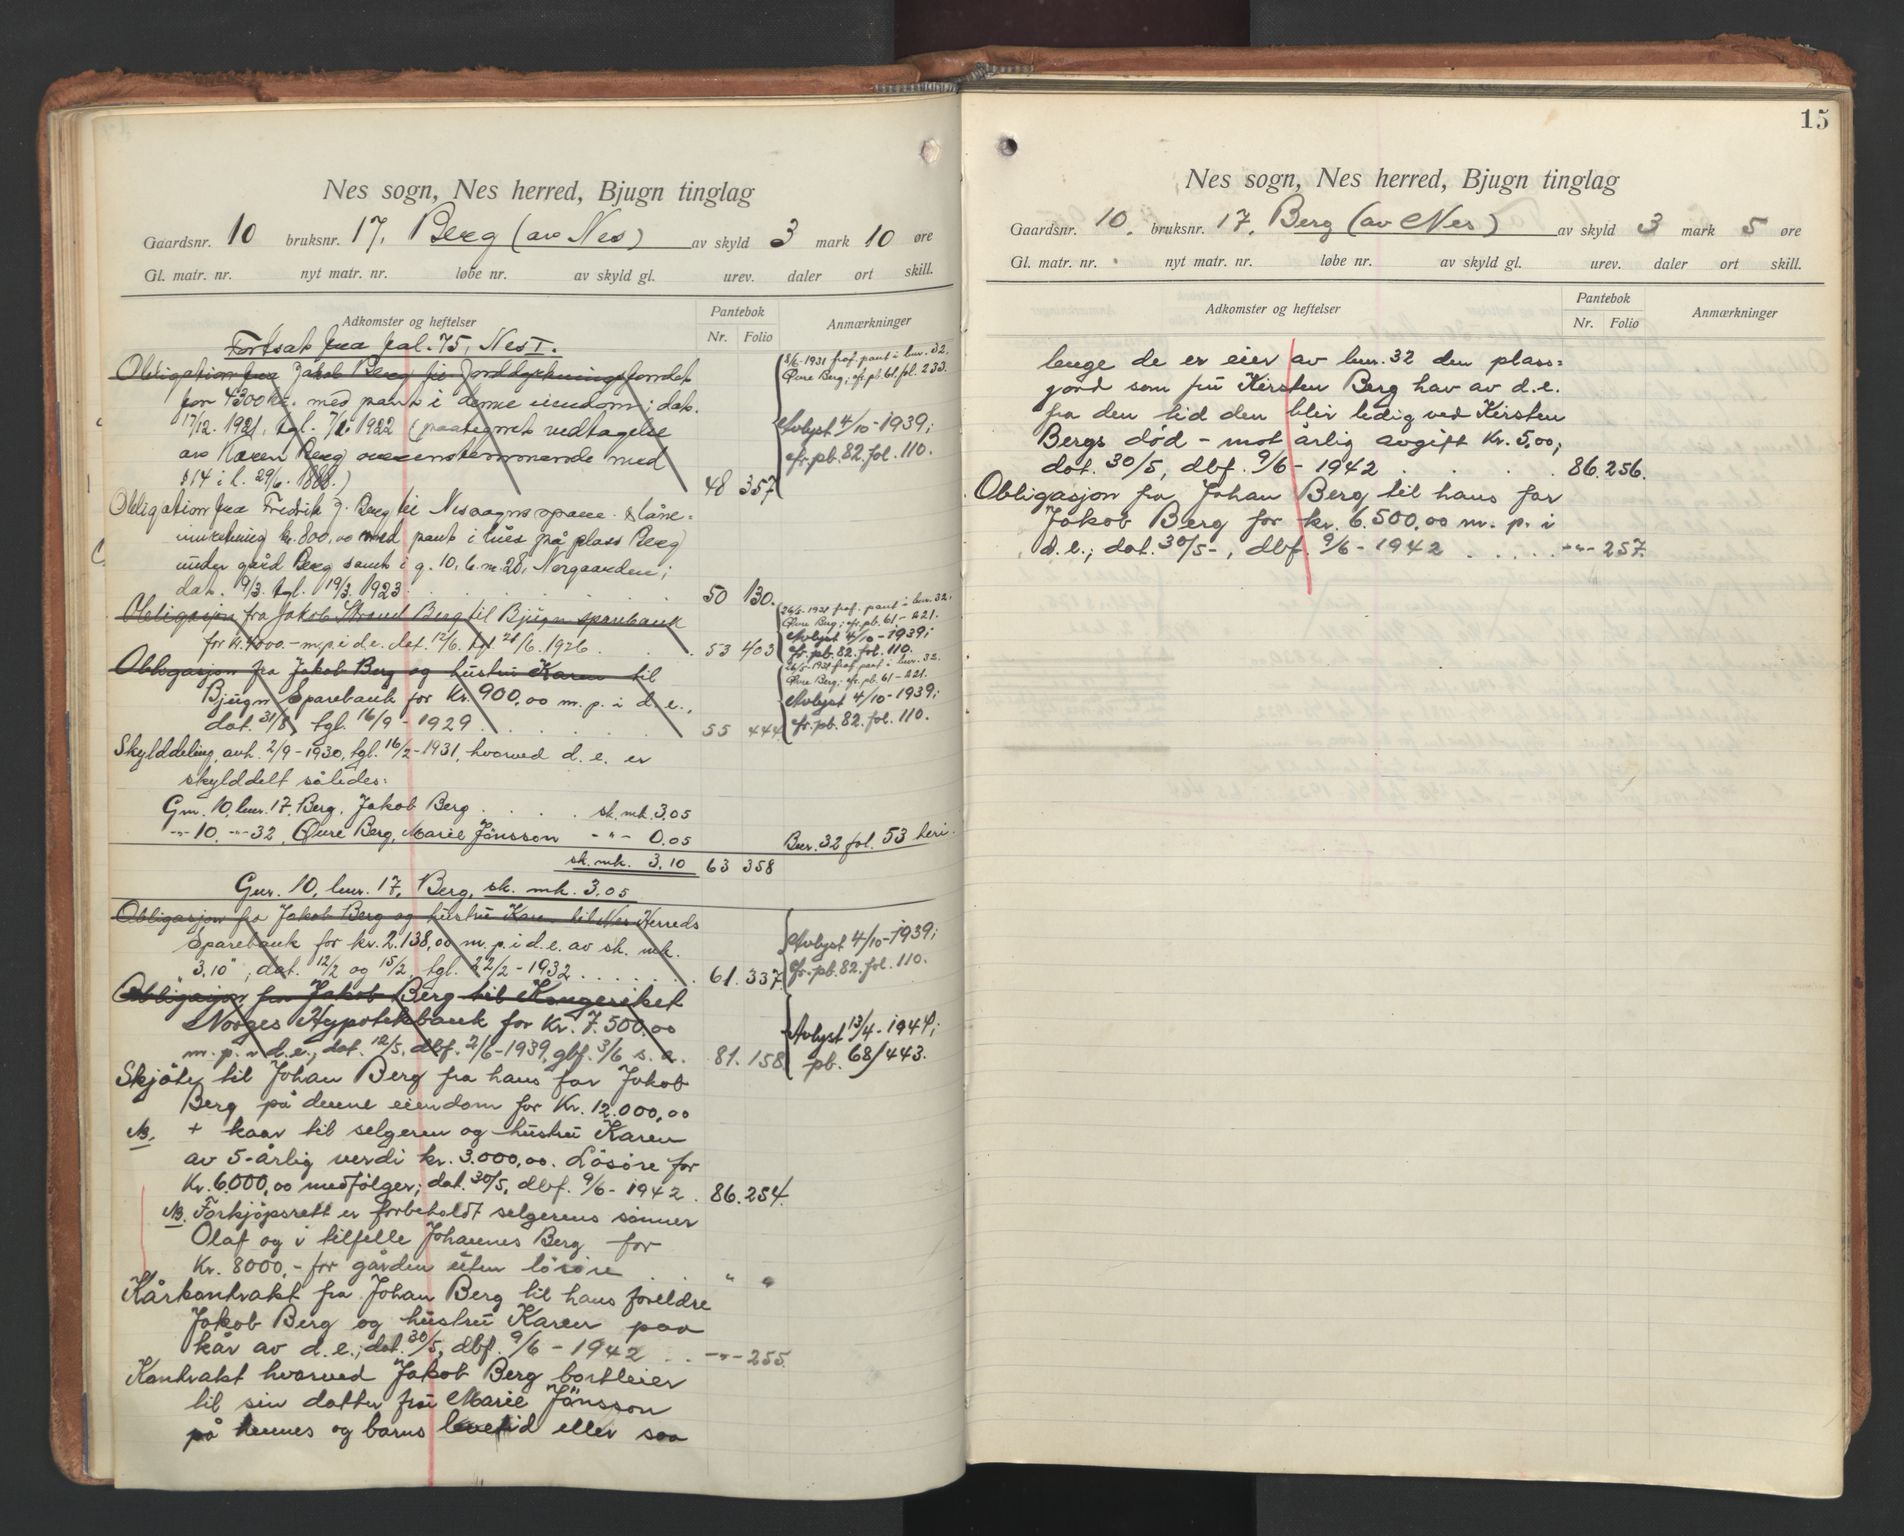 Nes sogn, Nes herred, Bjugn tinglag
Gaardsnr. 10 bruksnr. 17, Berg (av Nes) av skyld 3 mark 10 øre
Gl. matr. nr. nyt matr. nr. løbe nr. av skyld gl. urev. daler ort skill.
Adkomster og heftelser Pantebok Nr. Folio Anmærkninger
Fortsat fra fol. 75, Nes I.
Obligation fra Jakob Berg til Jorddyrkningsfondet
for 4300 kr. med pant i denne eiendom; dat.
17/12. 1921, tgl. 7/2 1922 (paategnet vedtagelse
av Karen Berg overenstemmende med
§ 14 i l. 29/6. 1888.) 48 357
8/6-1931 fraf. pant i bnr. 32,
Øvre Berg; cfr. pb. 61, fol. 233.
Avlyst 4/10-1939;
cfr. pb. 82. fol. 110.
Obligation fra Fredrik J. Berg til Nessogns spare- & låne-
innretning kr. 800,00 med pant i hus på plass Berg
under gård Berg samt i g. 10, b.nr. 28, Norgaarden;
dat. 19/3. tgl. 19/3. 1923. 50 130.
Obligasjon fra Jakob Strand Berg til Bjugn sparebank
for kr. 4000.- m.p. i d.e. dat. 12/6. tgl. 21/6. 1926. 53 403
26/5-1931 fraf. pant i bnr. 32,
Øvre Berg; cfr. pb. 61 - 221.
Avlyst 4/10-1939;
cfr. pb. 82. fol. 110.
Obligasjon fra Jakob Berg og hustru Karen til
Bjugn Sparebank for Kr. 900,00 m. p. i d. e.,
dat. 31/8, tgl. 16/9 - 1929 55 444
26/5-1931 fraf. pant i bnr. 32.
Øvre Berg; cfr. pb. 61 - 221.
Avlyst 4/10-1939;
cfr. pb. 82. fol. 110.
Skylddeling, avh. 2/9-1930, tgl. 16/2-1931, hvorved d. e. er
skylddelt således:
Gnr. 10, bnr. 17, Berg, Jakob Berg . . . sk. mk. 3,05
-"- 10, -"- 32, Øvre Berg, Marie Jönsson -"- 0,05 Bnr. 32 fol. 53 heri.
sk. mk. 3,10 63 358
Gnr. 10, bnr. 17, Berg, sk. mk. 3,05
Obligasjon fra Jakob Berg og hustru Karen til Nes Herreds
Sparebank for kr. 2.138,00 m. p. i d. e. av sk. mk.
"3,10"; dat. 12/2 og 15/2, tgl. 22/2 - 1932 61. 337
Avlyst 4/10-1939;
cfr. pb. 82. fol. 110.
Obligasjon fra Jakob Berg til Kongeriket
Norges Hypotekbank for Kr. 7.500,00
m. p. i d. e.; dat. 12/5, dbf. 2/6-1939, gbf. 3/6 s. a. 81. 158
Avlyst 13/4-1944;
pb. 68/443.
Skjöte til Johan Berg fra hans far Jakob
Berg på denne eiendom for Kr. 12.000,00
NB. + kaar til selgeren og hustru Karen
av 5-årlig verdi kr. 3.000,00. Lösöre for
Kr. 6000,00 medfölger; dat. 30/5, dbf. 9/6 - 1942. 86. 254.
NB. Forkjöpsrett er forbeholdt selgerens sönner
Olaf og i tilfelle Johannes Berg for
Kr. 8000,- for gården uten lösöre . . " "
Kårkontrakt fra Johan Berg til hans foreldre
Jakob Berg og hustru Karen paa
kår av d. e.; dat. 30/5, dbf. 9/6 - 1942 . . -"- 255.
Kontrakt hvorved Jakob Berg bortleier
til sin datter fru Marie Jönsson
på hennes og barns levetid eller saa
15
Nes sogn, Nes herred, Bjugn tinglag
Gaardsnr. 10, bruksnr. 17, Berg (av Nes) av skyld 3 mark 5 øre
Gl. matr. nr. nyt matr. nr. løbe nr. av skyld gl. urev. daler ort skill.
Adkomster og heftelser Pantebok Nr. Folio Anmærkninger
lenge de er eier av bnr. 32 den plass-
jord som fru Kirsten Berg har av d. e.
fra den tid den blir ledig ved Kirsten
Bergs död - mot årlig avgift Kr. 5,00;
dat. 30/5, dbf. 9/6 - 1942 . . . 86. 256.
Obligasjon fra Johan Berg til hans far
Jakob Berg for kr. 6.500,00 m. p. i
d. e.; dat. 30/5-, dbf. 9/6 - 1942 . . . . -"- 257.